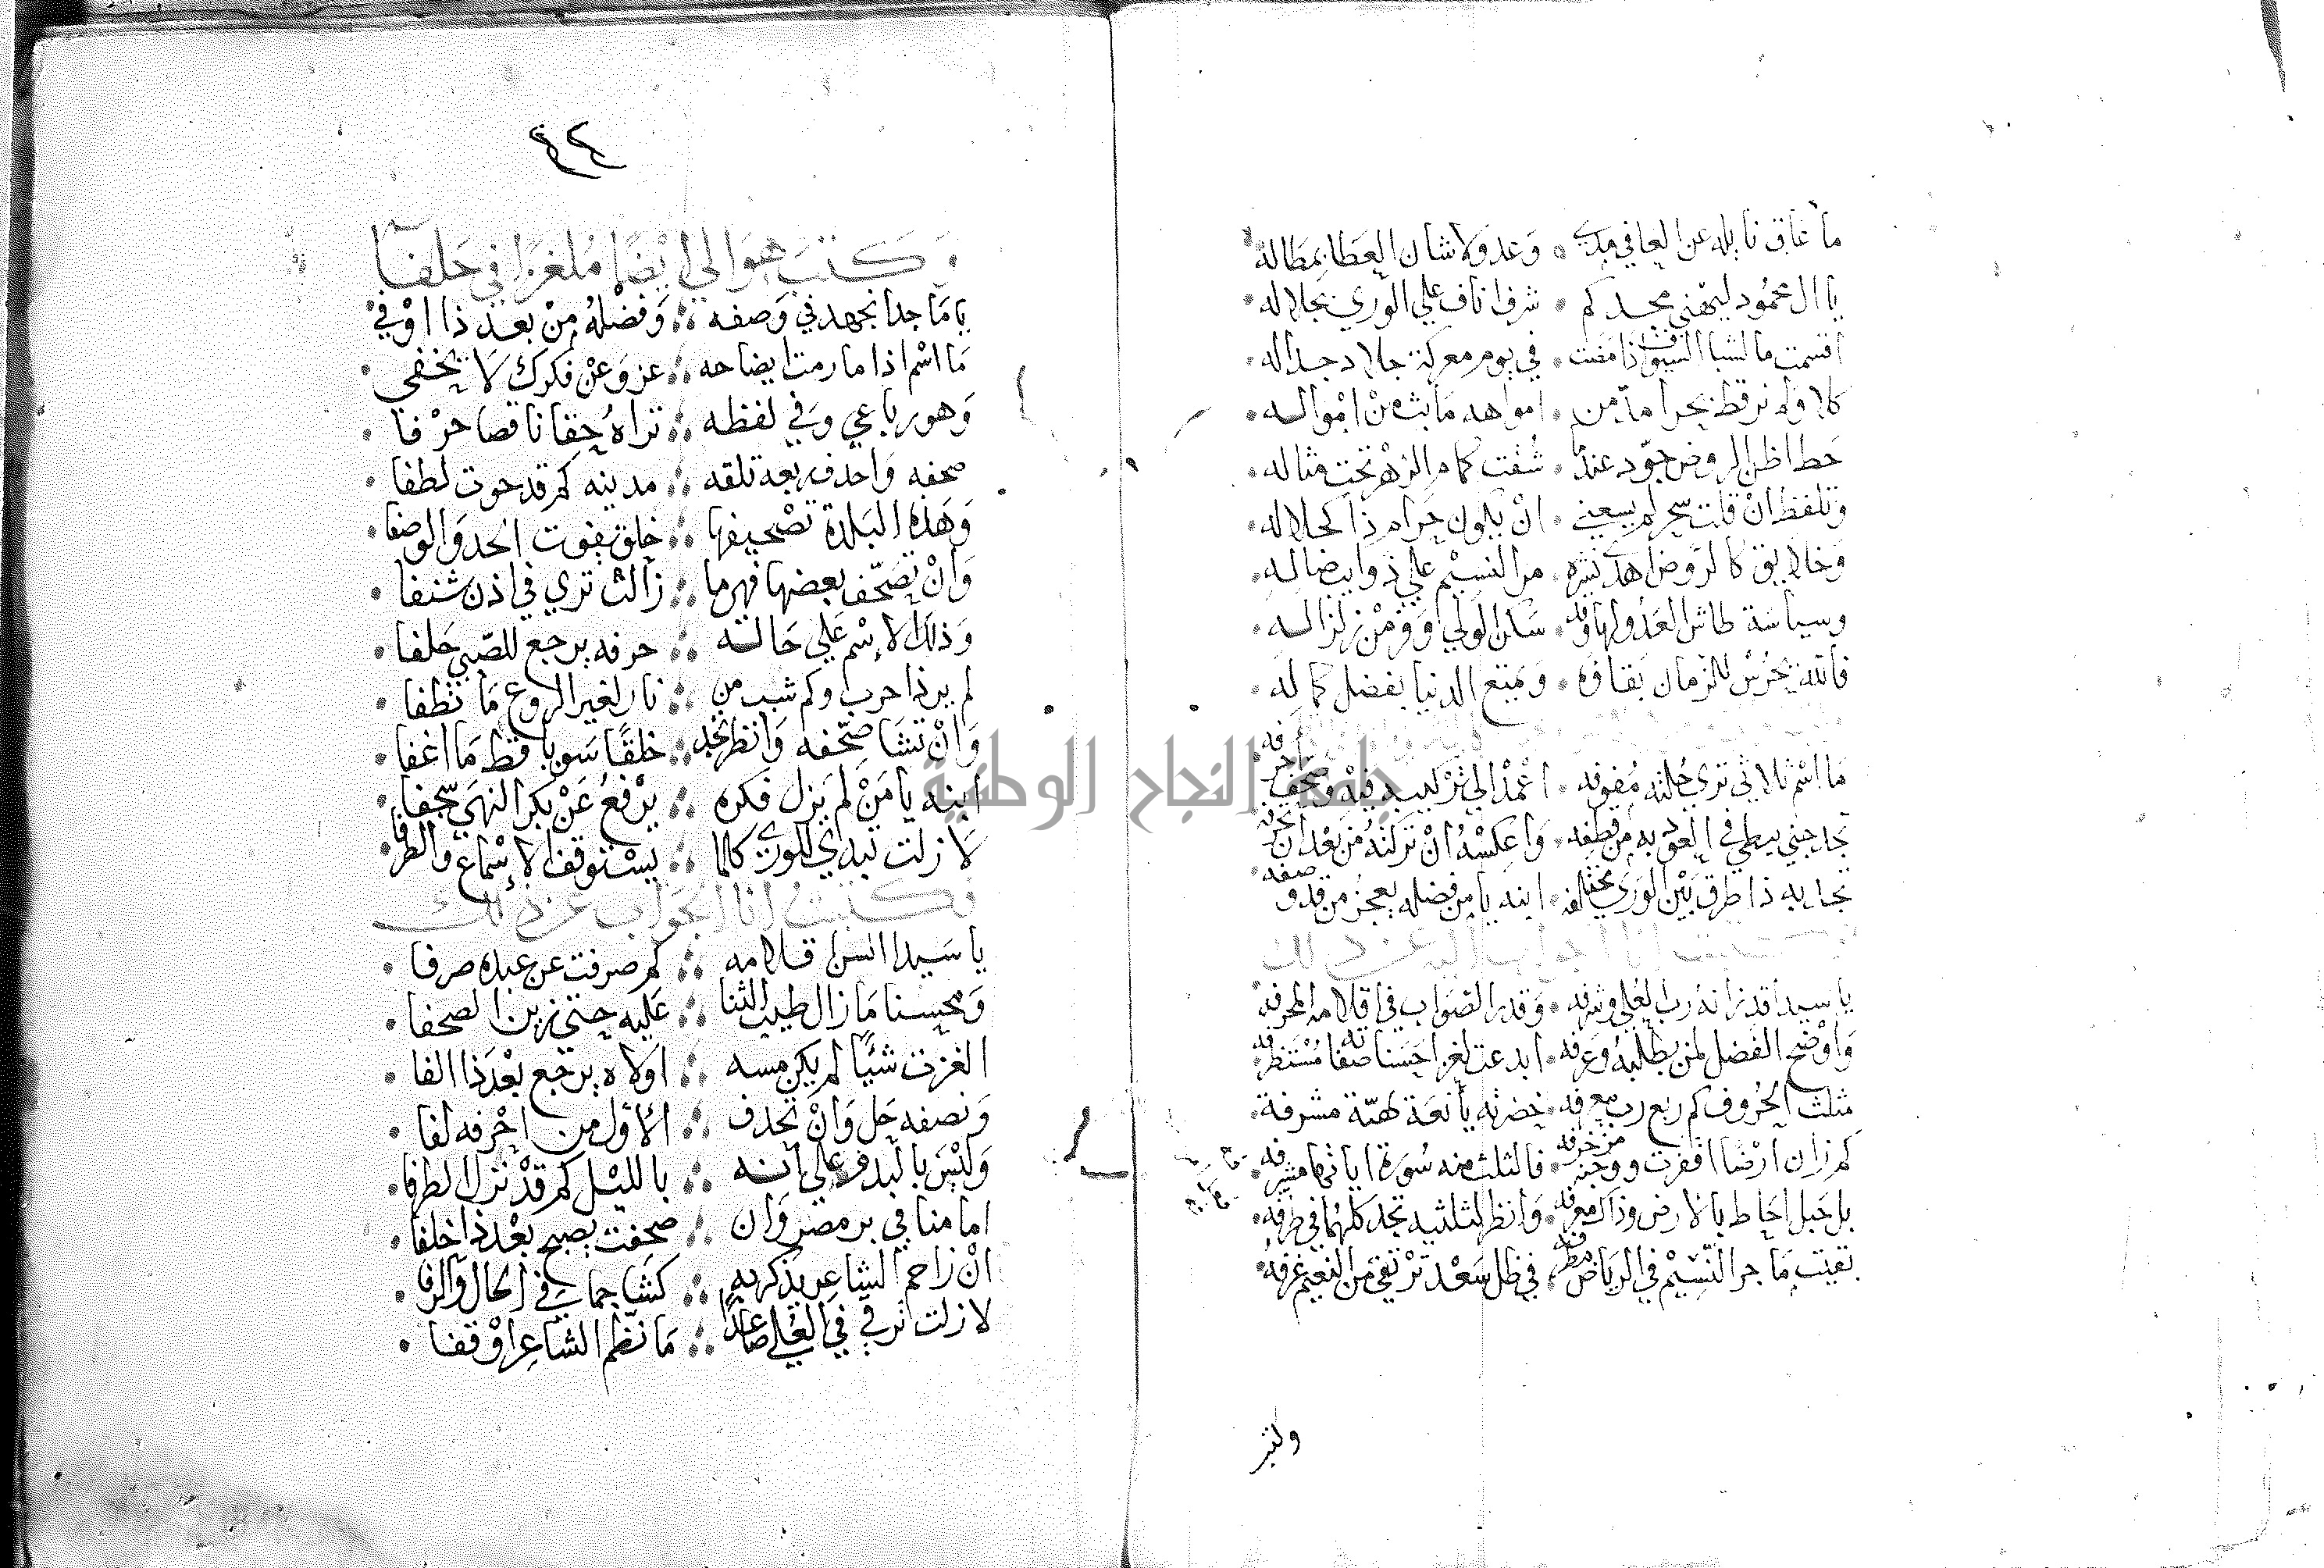 ما عاق نايله عن العافي مدي وعد ولا شان العطا بمطاله
يا ال محمود ليهني مجدكم شرفا اناف علي الوري بجلاله
اقسمت ما لشبا السيوف اذا مضت في يوم معركة جلاد جداله
كلا ولم نر قط بحرا مد من امواهه ما بث من امواله
خط اظن الروض جود عنده شقت كمام الزهر تحت مثاله
وتلفظ ان قلت سحر لم يسعني ان يكون حرام ذا كحلاله
وخلايق كالروض اهدي نشره مر النسيم علي ذوايب ضاله
وسياسة طاش العدو لها وقد سكن الولي وقر من زلزاله
فالله يحرس للزمان بقاؤه ويمتع الدنيا بفضل كماله
ما اسم ثلاثي تري حلته مفوفه اعمد الي تركيب فيه وصحف احرفه
تجد جني يبطي في العود به من قطفه واعكسه ان تركته من بعد ان تحرفه
تجد به ذا طرق بين الوري مختلفه ابنه يا من فضله يعجز من قد وصفه
وكتبت انا الجواب اليه عن ذلك
يا سيدا قد زانه رب العلي وشرفه وقدر الصواب في اقلامه المحرفه
واوضح الفضل لمن يطلبه وعرفه ابدعت لغزا حسنا صفاته مستظرفه
مثلث الحروف كم ربع رب معرفه خضرته يانعة لهمة مشرفة
كم زان ارضا اقفرت ووجنة مزخرفه فالثلث منه سورة اياتها مشرفه
بل جبل احاط بالارض وذاك معرفه وانظر لثلثيه تجد كلهما في طرفه
بقيت ما جر النسيم في الرياض مطرفه في ظل سعد ترتقي من النعيم غرفه
ولتبر
٤٢
وكتب هو الي ايضا ملغزا في حلفا
يا ماجدا نجهد في وصفه وفضله من بعد ذا اوفي
ما اسم اذا ما رمت ايضاحه عز وعن فكرك لا يخفي
وهو رباعي وفي لفظه تراه حقا ناقصا حرفا
صحفه واحذف ربعه تلقه مدينه كم قد حوت لطفا
وهذه البلدة تصحيفها خلق يفوت الحد والوصفا
وان تصحف بعضها فهو ما زالت تري في اذن شنفا
وذلك الاسم علي حاله حرفه يرجع للصبي حلفا
لم ير ذا حرب وكم شب من نار لغير الروع ما تطفا
وان تشا صحفه وانظر تجد خلقا سويا قط ما اغفا
ابنه يا من لم يزل فكره يرفع عن بكر النهي سجفا
لا زلت تبدي للوري كلما يستوقف الاسماع والطرفا
وكتبت انا الجواب عن ذلك
يا سيدا السن اقلامه كم صرفت عن عبده صرفا
ومحسنا ما زال طيب الثنا عليه حتي زين الصحفا
الغزت شيئا لم يكن مسه اولاه يرجع بعد ذا الفا
ونصفه حل وان تحذف الاول من احرفه لفا
وليس بالبدو علي انه بالليل كم قد نزل الطرفا
اما منا في بر مصر وان صحفت يصبح بعد ذا خلفا
ان زاحم الشاعر يذكر به كشاجما في الحال والرفا
لا زلت ترقي في العلي صاعدا ما نظم الشاعر او قفا
جامعة النجاح الوطنية